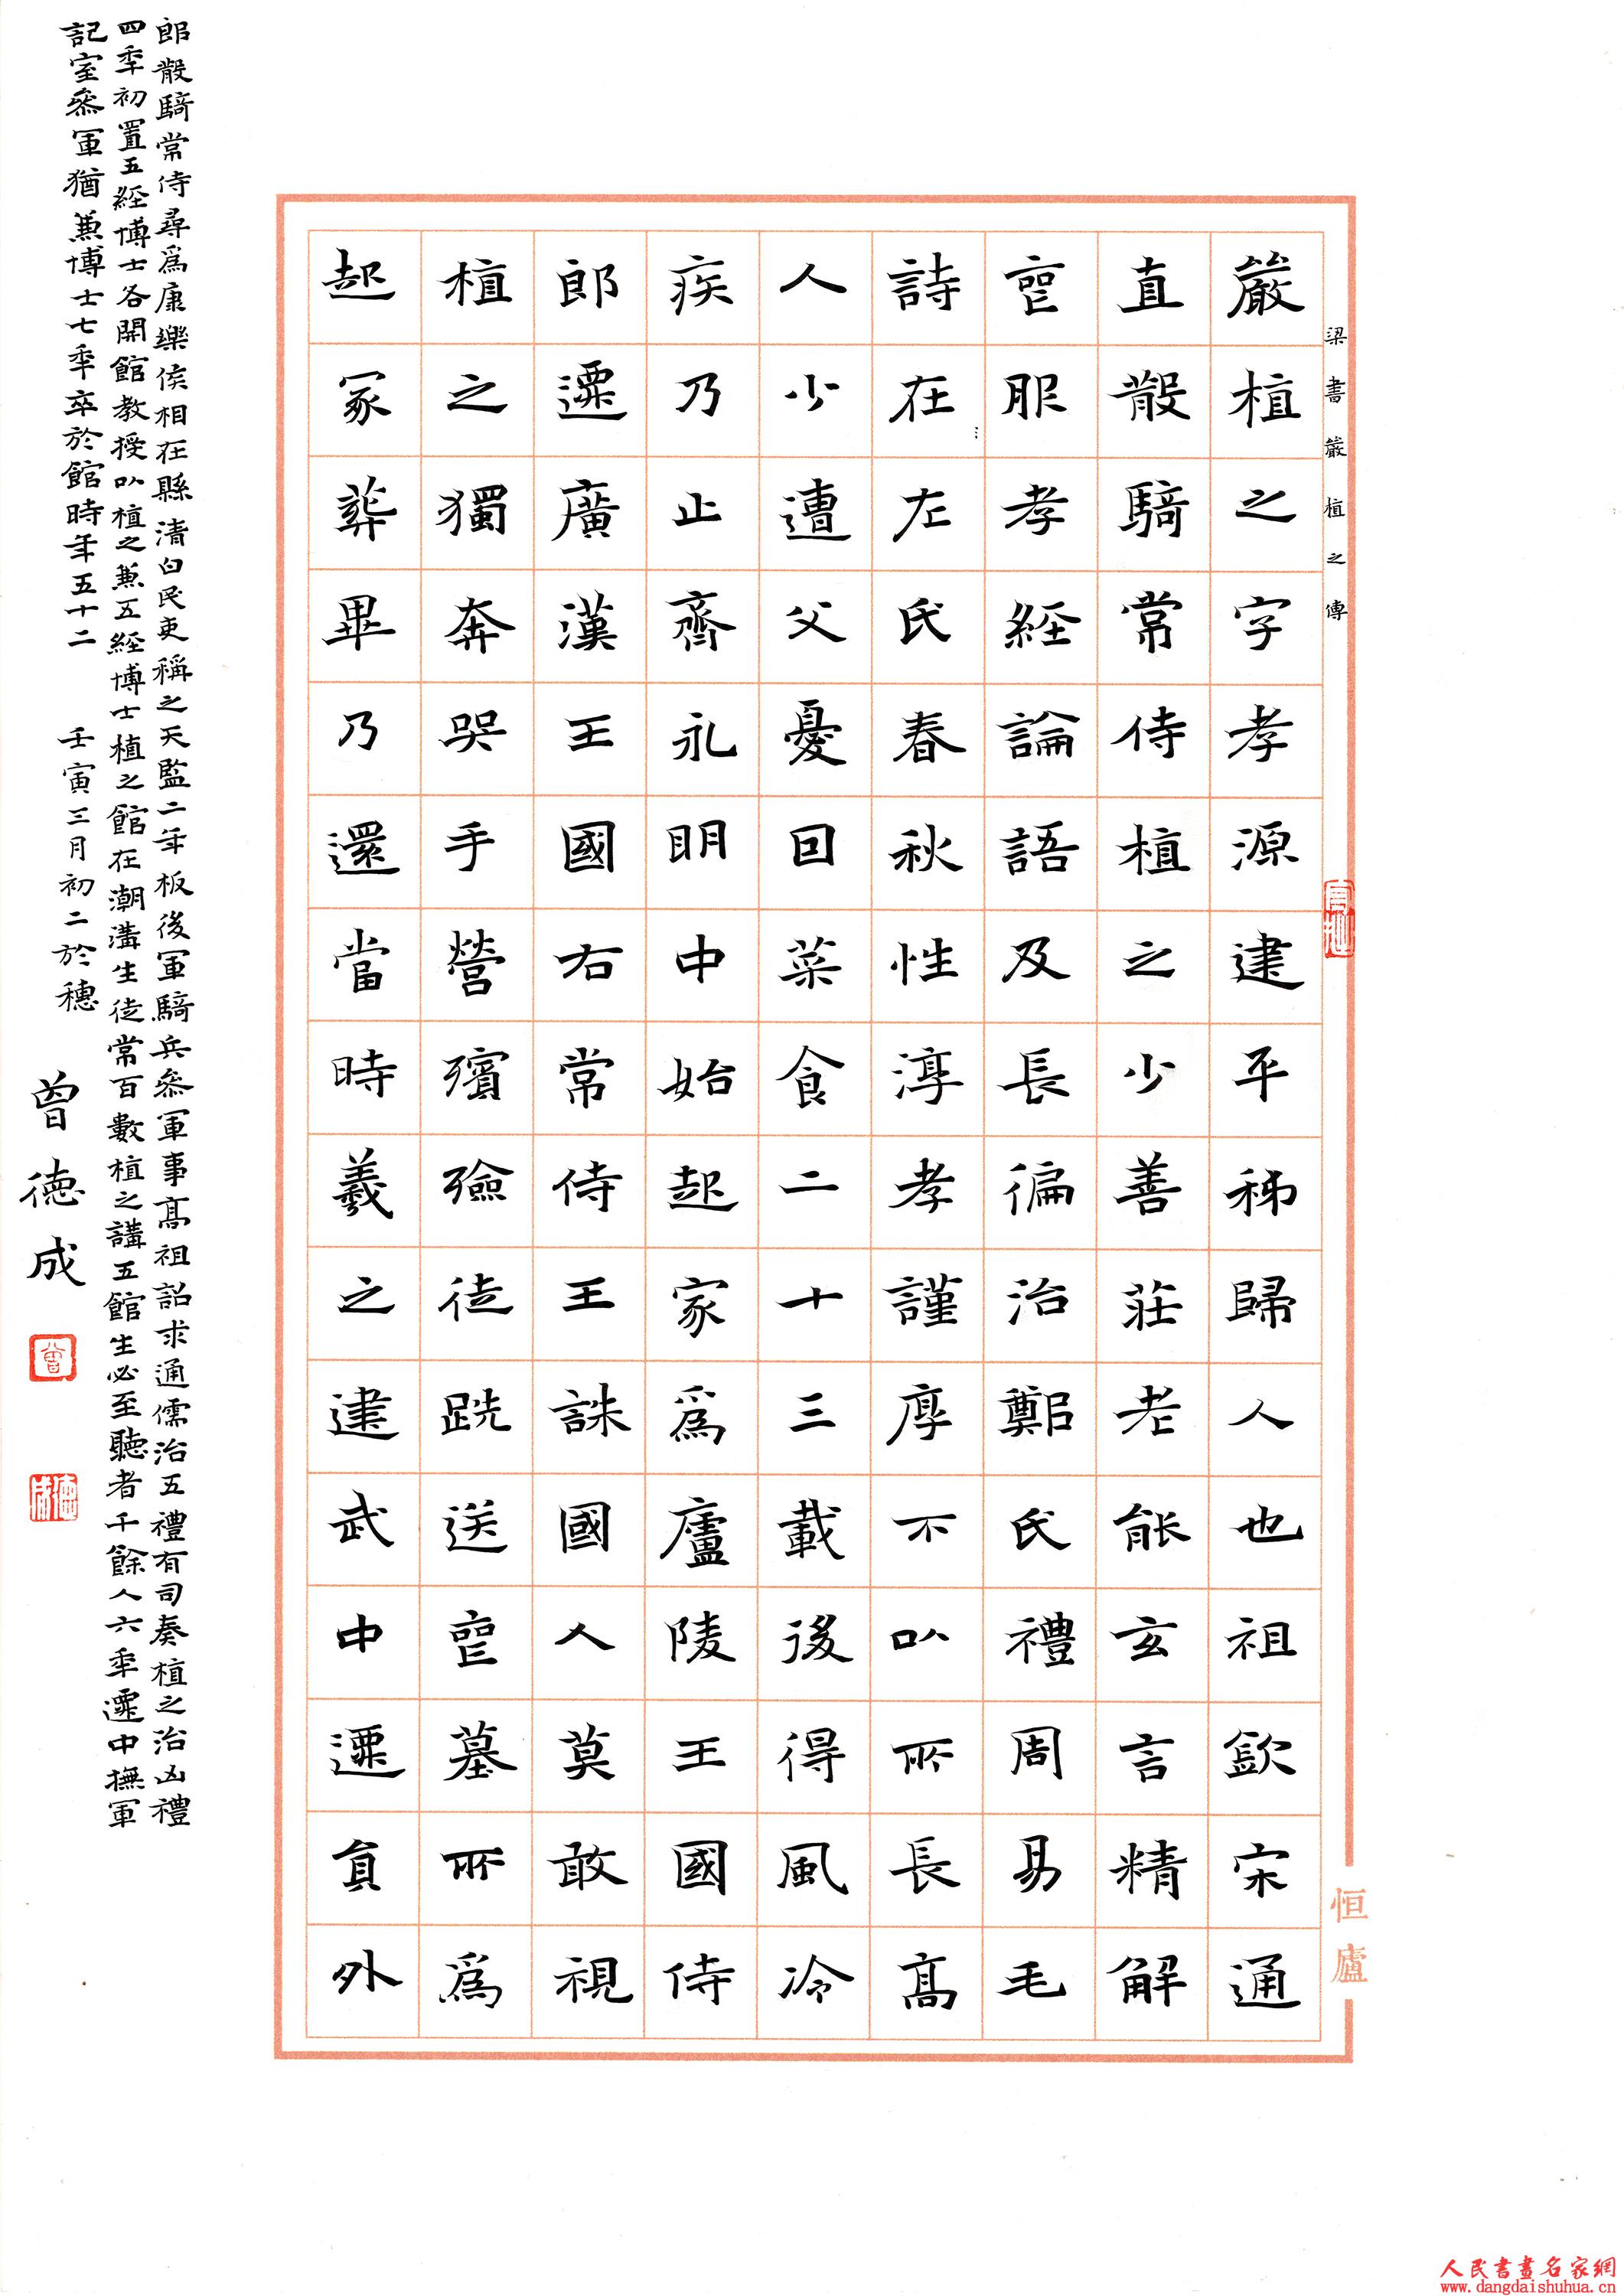 梁書嚴植之傳
嚴植之字孝源建平秭歸人也祖欽宋通
直散騎常侍植之少善莊老能玄言精解
喪服孝經論語及長徧治鄭氏禮周易毛
詩在左氏春秋性淳孝謹厚不以所長高
人少遭父憂因菜食二十三載後得風冷
疾乃止齊永明中始起家為廬陵王國侍
郎遷廣漢王國右常侍王誅國人莫敢視
植之獨奔哭手營殯殮徒跣送喪墓所為
起冢葬畢乃還當時義之建武中遷員外
郎散騎常侍尋為康樂侯相在縣清白民吏稱之天監二年板後軍騎兵參軍事高祖詔求通儒治五禮有司奏植之治凶禮
四年初置五經博士各開館教授以植之兼五經博士植之館在潮溝生徒常百數植之講五館生必至聽者千餘人六年遷中撫軍
記室參軍猶兼博士七年卒於館時年五十二 壬寅三月初二於穗
曾德成
曾
德成
恒廬
人民書畫名家網
www.dangdaishuhua.cn